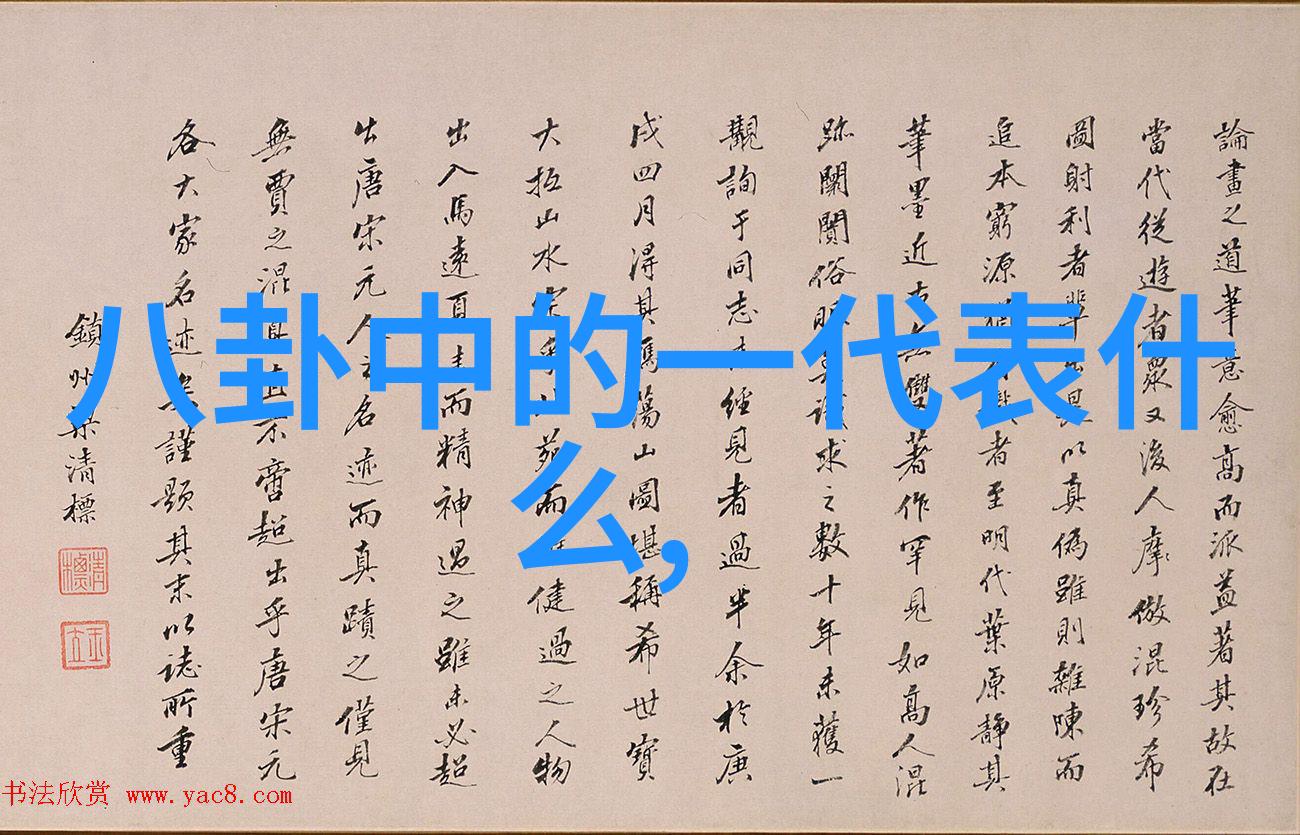 八卦中的一代表什
么,
論畫之道筆意愈高而派益著其故在
當代從遊者眾又後人摩倣混珍希
圖射利者以真偽雖則雜陳而
追本窮源者至明代葉原靜其
筆墨近著作罕見如高人混
跡闤闠俗求之數十年未獲一
觀詢于同志經見者過半余於庚
戌四月得其蕩山圖堪稱希世寶
大抵山水苑而健過之人物
出入馬遠夏而精神過之雖未必超
出唐宋元人名迹而真蹟之僅見
無賈之混不啻超出乎唐宋元
各大家名迹矣謹題其末以誌所重
鎮州梁清標
清標
書法欣赏 www.yac8.com